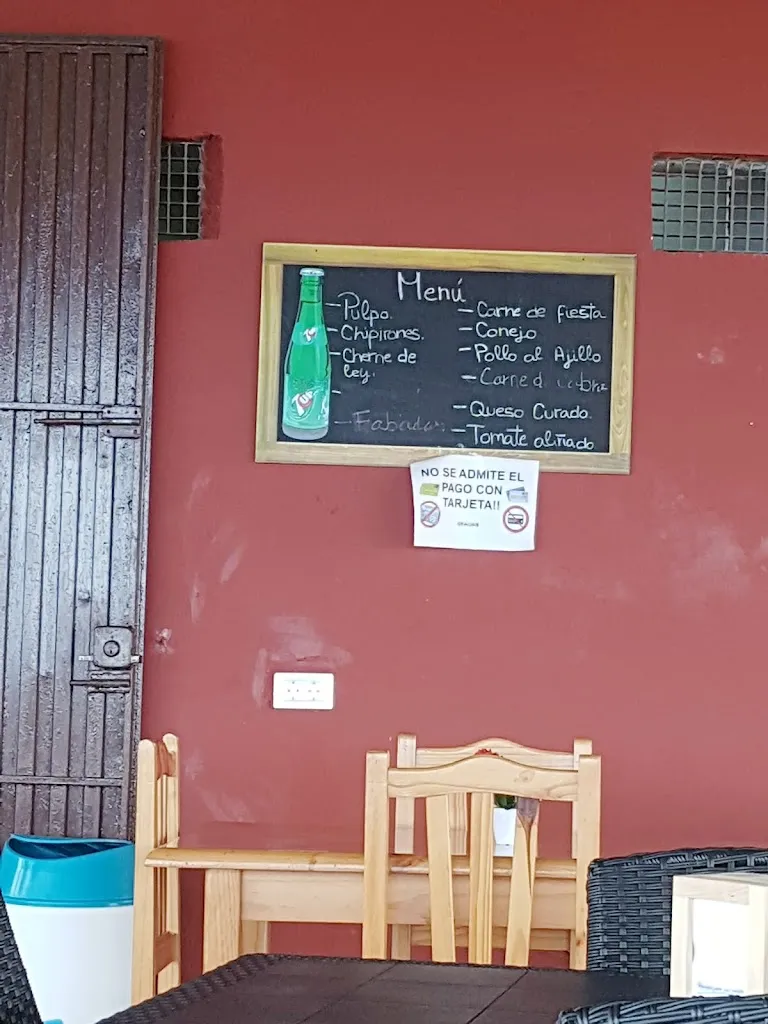 Menú
- Pulpo.
- Chipirones.
- Cherne de
ley.
-
- Fabadas
- Carne de fiesta
- Conejo
- Pollo al Ajillo
- Carne d cabra
- Queso Curado.
- Tomate aliñado
7up
7up
NO SE ADMITE EL
PAGO CON
TARJETA!!
GRACIAS